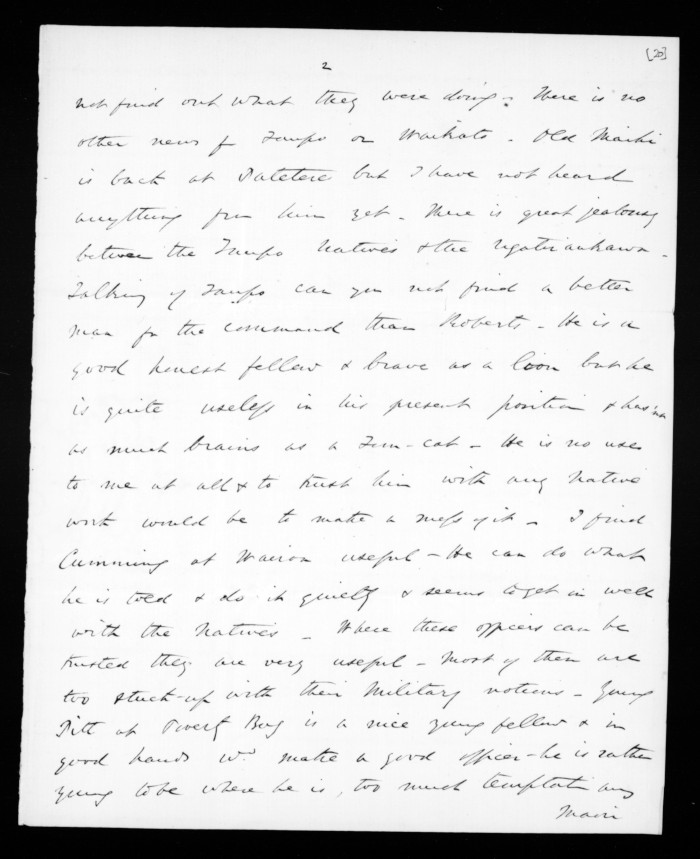 [20]
2
not find out what they were doing - There is no
other news fr Taupo or Waikato - Old Maihi
is back at Patetere but I have not heard
anything from him yet - There is great jealousy
between the Taupo Natives & the Ngatiraukawa -
Talking of Taupo can you not find a better
man for the command than Roberts - He is a
good honest fellow & brave as a lion but he
is quite useless in his present position & has not
as much brains as a Tom-cat - He is no use
to me at all & to trust him with any Native
work would be to make a mess of it - I find
Cumming at Wairoa useful - He can do what
he is told & do it quietly & seems to get on well
with the Natives - Where these officers can be
trusted they are very useful - Most of them are
too stuck-up with their Military notions - Young
Pitt at Poverty Bay is a nice young fellow & in
good hands wd make a good officer - he is rather
young to be where he is, too much temptation
Maori